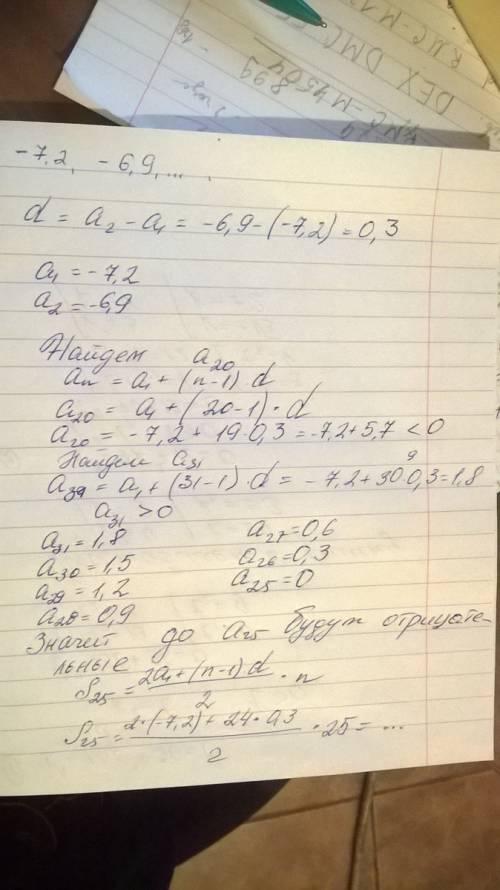 DEX DMC
-7,2, -6,9,... .
d = a₂ - a₁ = -6,9-(-7,2)=0,3
a₁ = -7,2
a₂ = -6,9
Найдем a₂₀
aₙ = a₁ + (n-1)·d
a₂₀ = a₁ + (20-1)·d
a₂₀ = -7,2 + 19·0,3 = -7,2+5,7 < 0
Найдем a₃₁
9
a₃₉ = a₁ + (31-1)·d = -7,2+30·0,3=1,8
a₃₁ >0
a₃₁ = 1,8 a₂₇=0,6
a₃₀ = 1,5 a₂₆=0,3
a₂₉ = 1,2 a₂₅=0
a₂₈= 0,9
Значит до a₂₅ будут отрицате-
льные
S₂₅ = (2a₁ + (n-1)d)/2 · n
S₂₅ = (2·(-7,2) + 24·0,3)/2 · 25 = ...